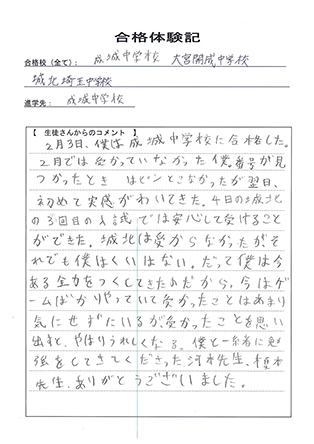 合格体験記
合格校（全て）： 成城中学校 大宮開成中学校
城北埼玉中学校
進学先： 成城中学校
【 生徒さんからのコメント 】
2月3日、僕は成城中学校に合格した。
2月では受かっていなかった僕の番号が見
つかったときはピンとこなかったが翌日、
初めて実感がわいてきた。4日の城北
の3回目の入試では安心して受けること
ができた。城北は受からなかったがそ
れでも僕はくいはない。だって僕は今
ある全力をつくしてきたのだから。今はゲ
ームばかりやっていて受かったことはあまり
気にせずにいるが、受かったことを思い
出すと、やはりうれしくなる。僕と一緒に勉
強をしてきてくださった河本先生、植木
先生、ありがとうございました。